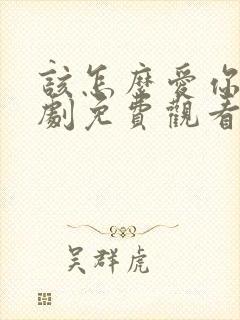 該怎麼愛你
劇免費觀看
吴群虎